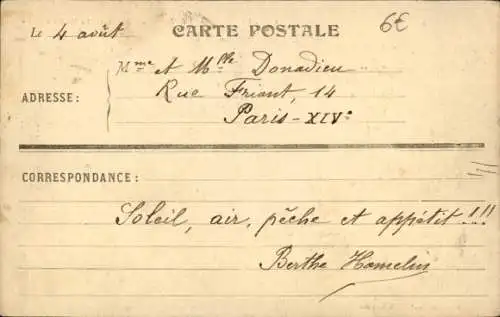 Le 4 août CARTE POSTALE 6€
Mme et Mlle Donadieu
ADRESSE : Rue Friant, 14
Paris-XIVe
CORRESPONDANCE :
Soleil, air, pêche et appétit !!!
Berthe Hamelin